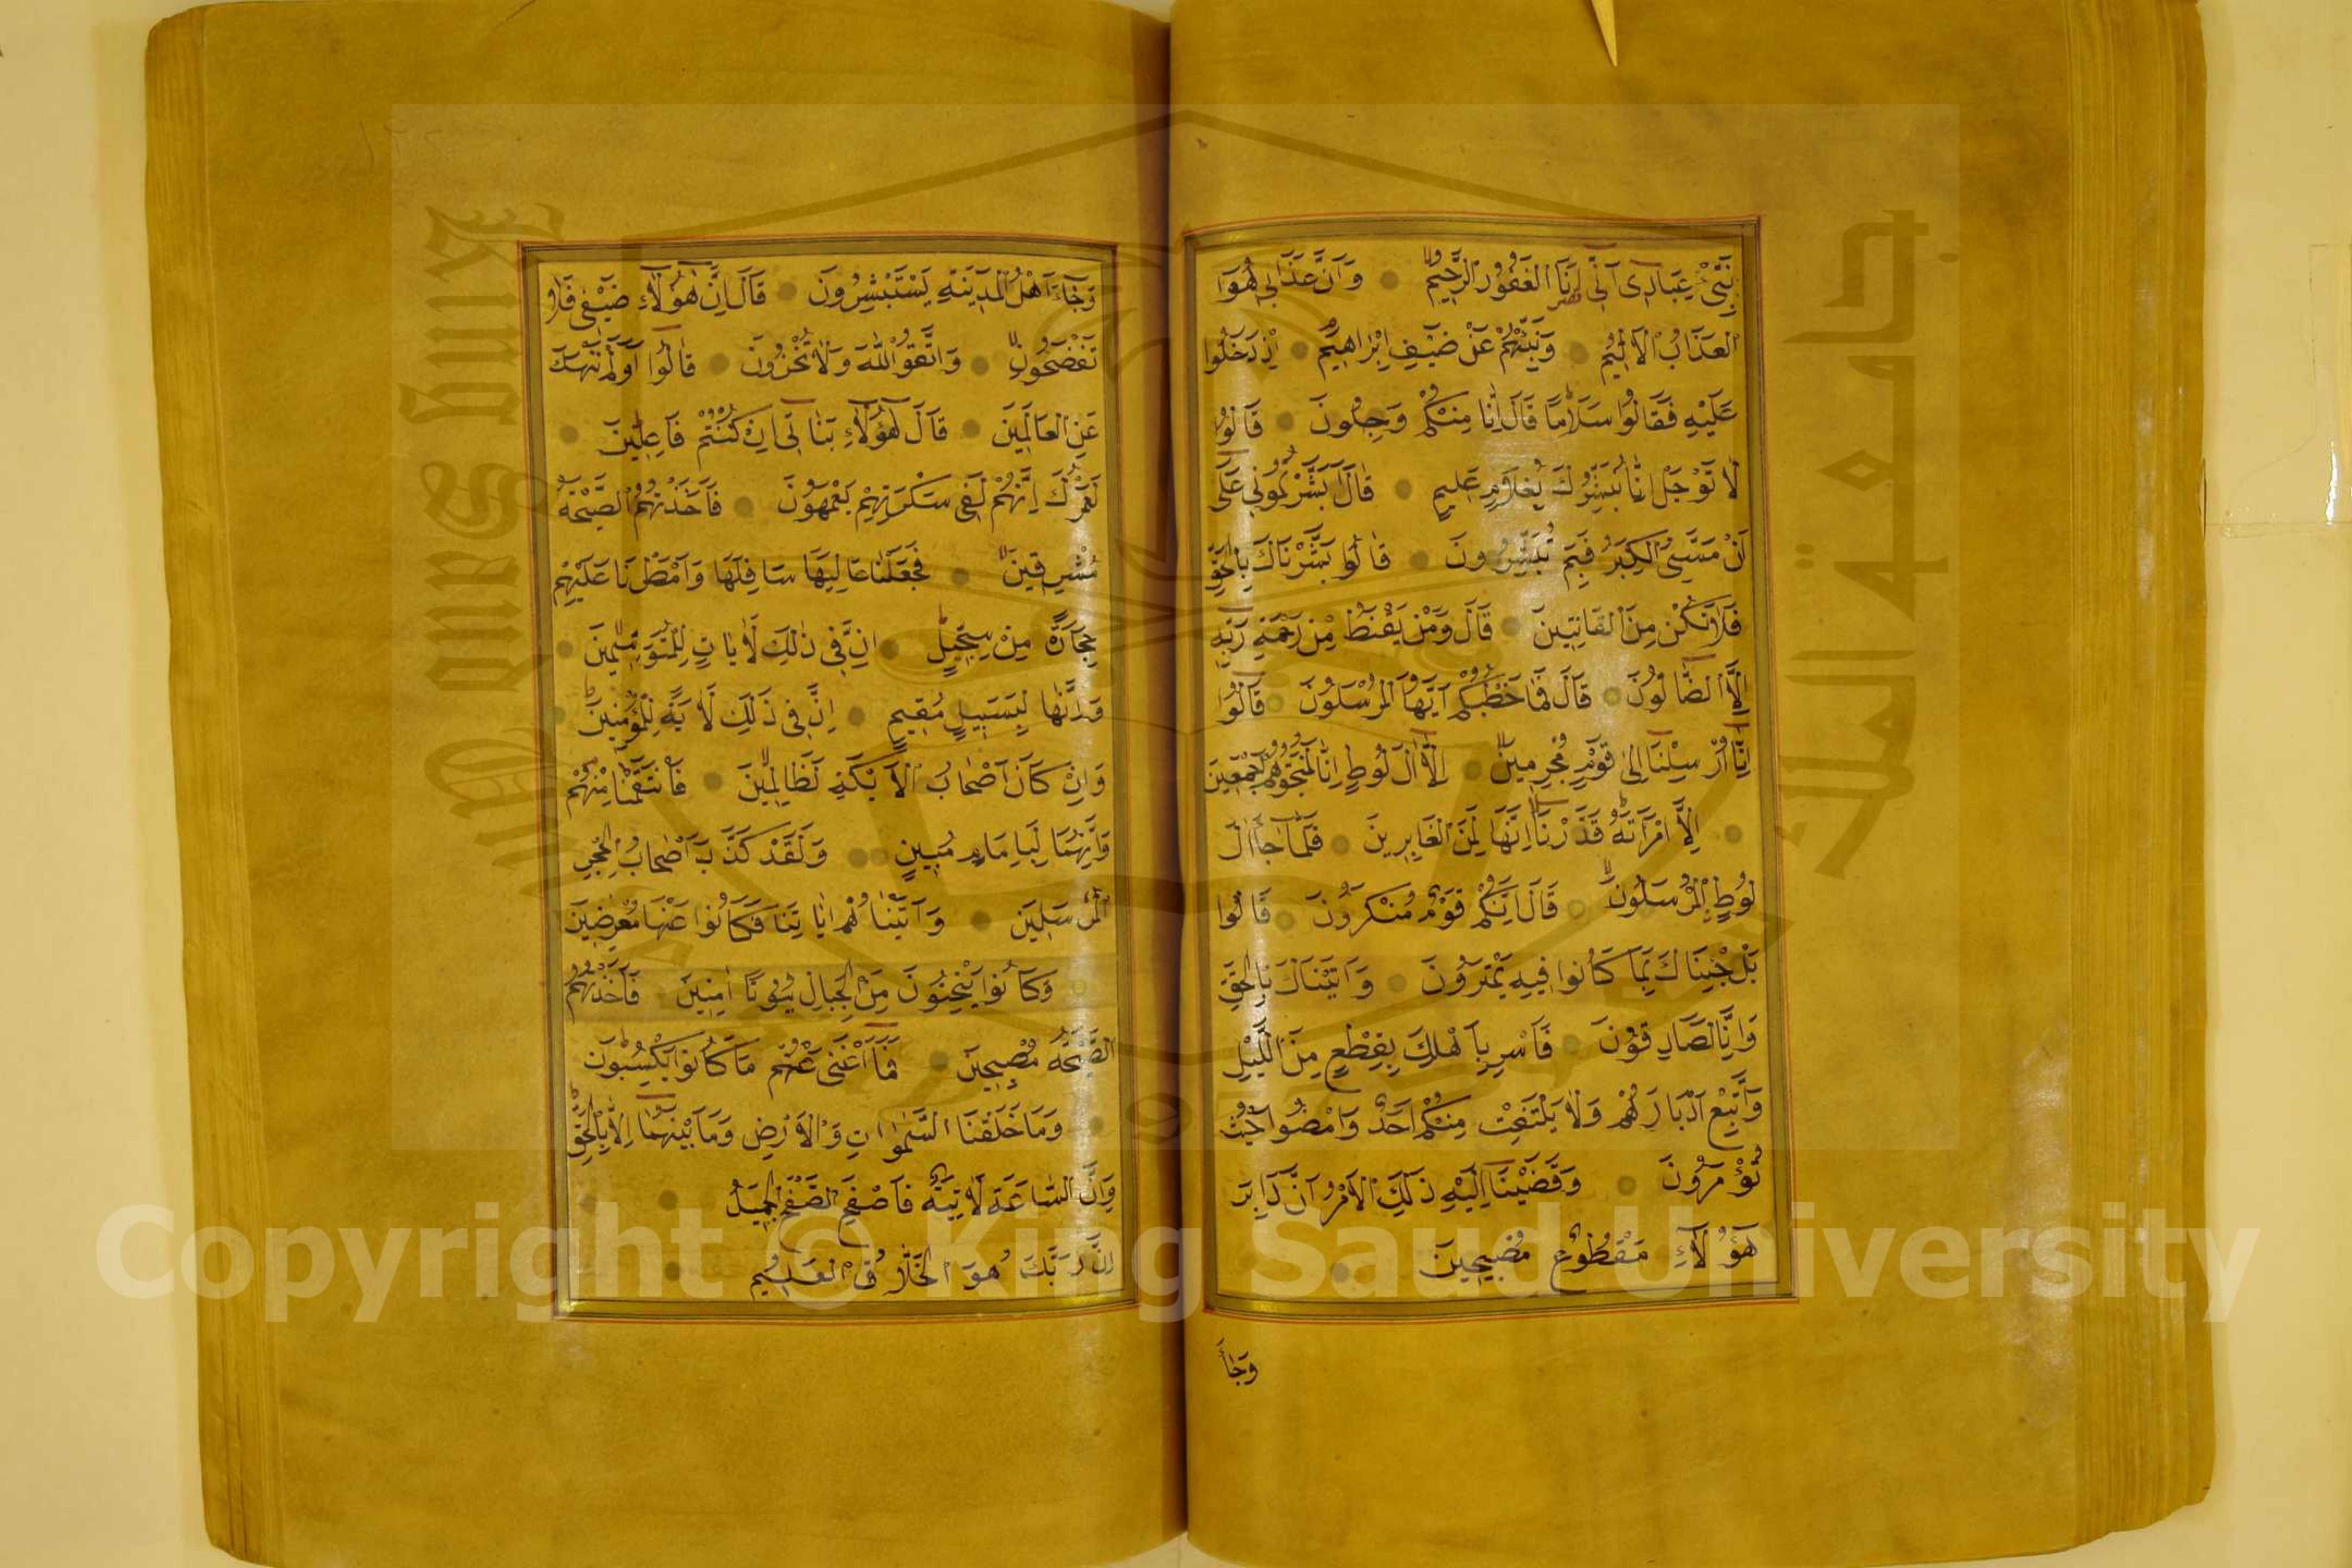 نَبِّئْ عِبَادِى اَنِّى اَنَا الْغَفُورُ الرَّحِيمُ وَاَنَّ عَذَابِى هُوَ
الْعَذَابُ الْاَلِيمُ وَنَبِّئْهُمْ عَنْ ضَيْفِ اِبْرَاهِيمَ اِذْ دَخَلُوا
عَلَيْهِ فَقَالُوا سَلَامًا قَالَ اِنَّا مِنْكُمْ وَجِلُونَ قَالُوا
لَا تَوْجَلْ اِنَّا نُبَشِّرُكَ بِغُلَامٍ عَلِيمٍ قَالَ اَبَشَّرْتُمُونِى عَلَى
اَنْ مَسَّنِىَ الْكِبَرُ فَبِمَ تُبَشِّرُونَ قَالُوا بَشَّرْنَاكَ بِالْحَقِّ
فَلَا تَكُنْ مِنَ الْقَانِتِينَ قَالَ وَمَنْ يَقْنَطُ مِنْ رَحْمَةِ رَبِّهِ
اِلَّا الضَّالُّونَ قَالَ فَمَا خَطْبُكُمْ اَيُّهَا الْمُرْسَلُونَ قَالُوا
اِنَّا اُرْسِلْنَا اِلَى قَوْمٍ مُجْرِمِينَ اِلَّا اٰلَ لُوطٍ اِنَّا لَمُنَجُّوهُمْ اَجْمَعِينَ
اِلَّا امْرَاَتَهُ قَدَّرْنَا اِنَّهَا لَمِنَ الْغَابِرِينَ فَلَمَّا جَاءَ اٰلَ
لُوطٍ الْمُرْسَلُونَ قَالَ اِنَّكُمْ قَوْمٌ مُنْكَرُونَ قَالُوا
بَلْ جِئْنَاكَ بِمَا كَانُوا فِيهِ يَمْتَرُونَ وَاَتَيْنَاكَ بِالْحَقِّ
وَاِنَّا لَصَادِقُونَ فَاَسْرِ بِاَهْلِكَ بِقِطْعٍ مِنَ اللَّيْلِ
وَاتَّبِعْ اَدْبَارَهُمْ وَلَا يَلْتَفِتْ مِنْكُمْ اَحَدٌ وَامْضُوا حَيْثُ
تُؤْمَرُونَ وَقَضَيْنَا اِلَيْهِ ذَلِكَ الْاَمْرَ اَنَّ دَابِرَ
هَؤُلَاءِ مَقْطُوعٌ مُصْبِحِينَ
وَجَاءَ
وَجَاءَ اَهْلُ الْمَدِينَةِ يَسْتَبْشِرُونَ قَالَ اِنَّ هٰؤُلَاءِ ضَيْفِى فَلَا
تَفْضَحُونِ وَاتَّقُوا اللّٰهَ وَلَا تُخْزُونِ قَالُوا اَوَلَمْ نَنْهَكَ
عَنِ الْعَالَمِينَ قَالَ هٰؤُلَاءِ بَنَاتِى اِنْ كُنْتُمْ فَاعِلِينَ
لَعَمْرُكَ اِنَّهُمْ لَفِى سَكْرَتِهِمْ يَعْمَهُونَ فَاَخَذَتْهُمُ الصَّيْحَةُ
مُشْرِقِينَ فَجَعَلْنَا عَالِيَهَا سَافِلَهَا وَاَمْطَرْنَا عَلَيْهِمْ
حِجَارَةً مِنْ سِجِّيلٍ اِنَّ فِى ذٰلِكَ لَاٰيَاتٍ لِلْمُتَوَسِّمِينَ
وَاِنَّهَا لَبِسَبِيلٍ مُقِيمٍ اِنَّ فِى ذَلِكَ لَاٰيَةً لِلْمُؤْمِنِينَ
وَاِنْ كَانَ اَصْحَابُ الْاَيْكَةِ لَظَالِمِينَ فَانْتَقَمْنَا مِنْهُمْ
وَاِنَّهُمَا لَبِاِمَامٍ مُبِينٍ وَلَقَدْ كَذَّبَ اَصْحَابُ الْحِجْرِ
الْمُرْسَلِينَ وَاٰتَيْنَاهُمْ اٰيَاتِنَا فَكَانُوا عَنْهَا مُعْرِضِينَ
وَكَانُوا يَنْحِتُونَ مِنَ الْجِبَالِ بُيُوتًا اٰمِنِينَ فَاَخَذَتْهُمُ
الصَّيْحَةُ مُصْبِحِينَ فَمَا اَغْنَى عَنْهُمْ مَا كَانُوا يَكْسِبُونَ
وَمَا خَلَقْنَا السَّمٰوَاتِ وَالْاَرْضَ وَمَا بَيْنَهُمَا اِلَّا بِالْحَقِّ
وَاِنَّ السَّاعَةَ لَاٰتِيَةٌ فَاصْفَحِ الصَّفْحَ الْجَمِيلَ
اِنَّ رَبَّكَ هُوَ الْخَلَّاقُ الْعَلِيمُ
King Saud University
جامعة الملك سعود
Copyright © King Saud University